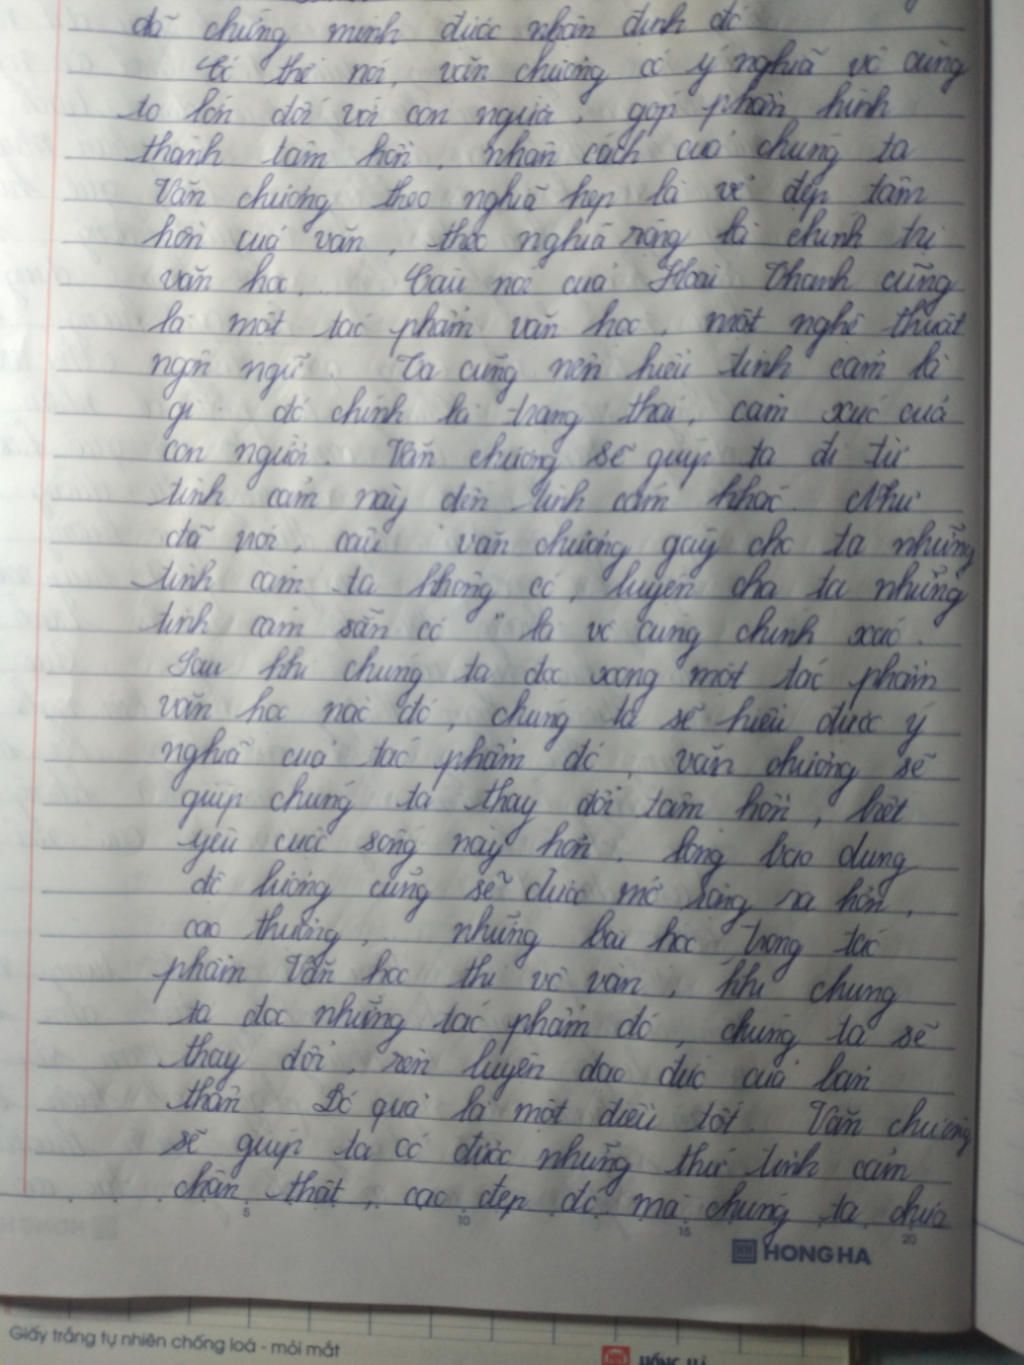 đã chứng minh được nhận định đó
Có thể nói, văn chương có ý nghĩa vô cùng
to lớn đối với con người, góp phần hình
thành tâm hồn, nhân cách của chúng ta
Văn chương theo nghĩa hẹp là vẻ đẹp tâm
hồn của văn, theo nghĩa rộng là chính trị
văn học... Câu nói của Hoài Thanh cũng
là một tác phẩm văn học, một nghệ thuật
ngôn ngữ. Ta cũng nên hiểu tình cảm là
gì. đó chính là trạng thái, cảm xúc của
con người. Văn chương sẽ giúp ta đi từ
tình cảm này đến tình cảm khác. Như
đã nói, câu " văn chương gây cho ta những
tình cảm ta không có, luyện cho ta những
tình cảm sẵn có " là vô cùng chính xác.
Sau khi chúng ta đọc xong một tác phẩm
văn học nào đó, chúng ta sẽ hiểu được ý
nghĩa của tác phẩm đó, văn chương sẽ
giúp chúng ta thay đổi tâm hồn, biết
yêu cuộc sống này hơn. lòng bao dung
độ lượng cũng sẽ được mở rộng ra hơn,
cao thượng, những bài học trong tác
phẩm Văn học thì vô vàn, khi chúng
ta đọc những tác phẩm đó, chúng ta sẽ
thay đổi, rèn luyện đạo đức của bản
thân. Đó quả là một điều tốt. Văn chương
sẽ giúp ta có được những thứ tình cảm
chân thật, cao đẹp đó mà chúng ta chưa
5 10 15 20
HONG HA
Giấy trắng tự nhiên chống loá - mỏi mắt
HỒNG HÀ